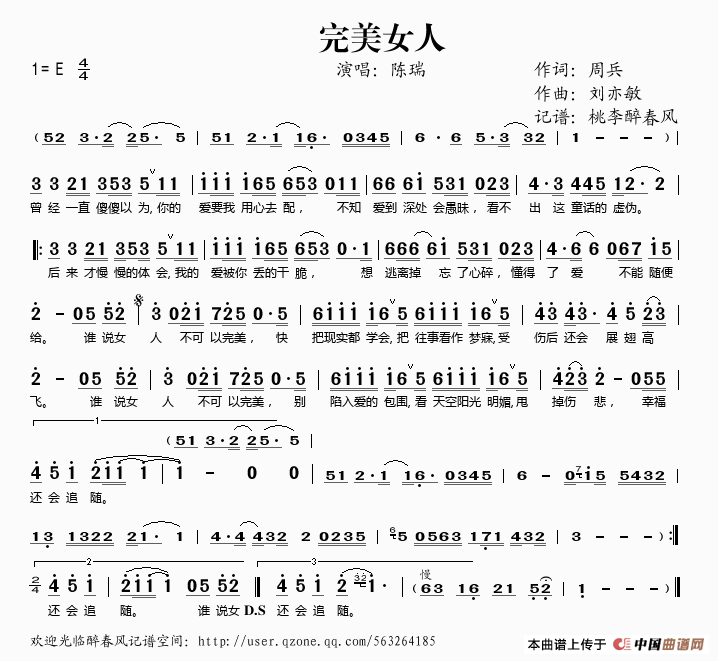 完美女人
1=E 4/4
演唱：陈瑞
作词：周兵
作曲：刘亦敏
记谱：桃李醉春风
(52 3·2 25· 5 | 51 2·1 16· 0345 | 6·6 5·3 32 | 1 - - - |
3 3 21 353 5 11 | 111 165 653 011 | 66 61 531 023 | 4·3 445 12·2 |
曾 经 一直 傻傻以 为,你的 爱要我 用心去 配， 不知 爱到 深处 会愚昧，看不 出 这 童话的 虚伪。
3 3 21 353 5 11 | 111 165 653 0·1 | 666 61 531 023 | 4·6 6 067 15 |
后 来 才慢 慢的体 会,我的 爱被你 丢的干 脆， 想 逃离掉 忘 了心碎，懂得 了 爱 不能 随便
2 - 05 52 | 3 021 725 0·5 | 6111 165 6111 165 | 43 43· 5 23 |
给。 谁 说女 人 不可 以完美， 快 把现实都 学会,把 往事看作 梦寐,受 伤后 还会 展 翅高
2 - 05 52 | 3 021 725 0·5 | 6111 165 6111 165 | 423 2 - 055 |
飞。 谁 说女 人 不可 以完美， 别 陷入爱的 包围,看 天空阳光 明媚,甩 掉伤 悲， 幸福
1
(51 3·2 25· 5 |
4 5 1 211 1 | 1 - 0 0 | 51 2·1 16· 0345 | 6 - 0715 5432 |
还 会 追 随。
13 1322 21· 1 | 4·4 432 2 0235 | 65 0563 171 432 | 3 - - -) :|
2
3
2/4 4 5 1 | 211 1 05 52 | 4 5 1 2 321· | (63 16 21 52 | 1 - - -) |
慢
还 会 追 随。 谁 说女 D.S 还 会 追 随。
欢迎光临醉春风记谱空间：http://user.qzone.qq.com/563264185
本曲谱上传于 中国曲谱网